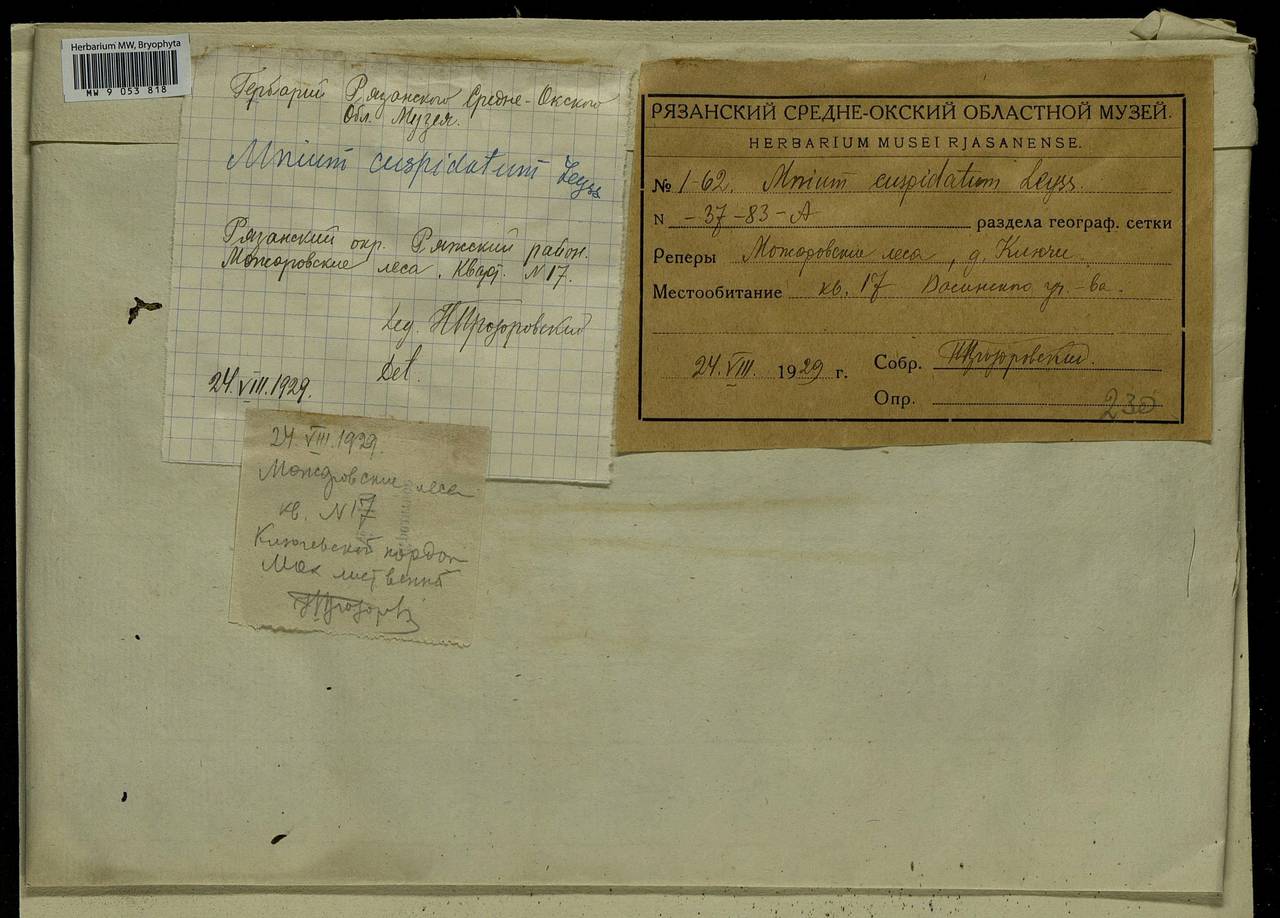 Herbarium MW, Bryophyta
MW 9 053 818
Гербарий Рязанского Средне-Окского
Обл. Музея.
Mnium cuspidatum Leyss
Рязанский окр. Ряжский район.
Можаровские леса. Кварт. N 17.
Leg. НПрозоровский
Det.
24.VIII.1929.
24.VIII.1929.
Можаровские леса
кв. N 17
Ключевской кордон
Мох лиственный
РЯЗАНСКИЙ СРЕДНЕ-ОКСКИЙ ОБЛАСТНОЙ МУЗЕЙ.
HERBARIUM MUSEI RJASANENSE.
№ 1-62. Mnium cuspidatum Leyss.
N -37-83-A раздела географ. сетки
Реперы Можаровские леса, д. Ключи.
Местообитание кв. 17
24.VIII. 1929 г.
Собр. НПрозоровский.
Опр.
230